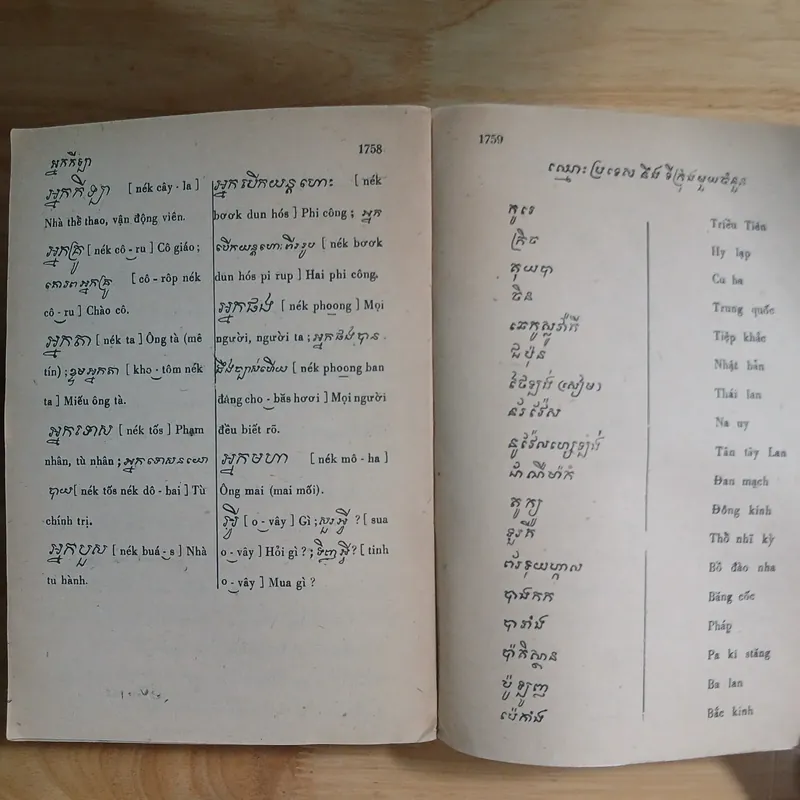 1758
អ្នកកីឡា
អ្នកកីឡា [ nék cây - la ]
Nhà thể thao, vận động viên.
អ្នកគ្រូ [ nék cô - ru ] Cô giáo ;
គោរពអ្នកគ្រូ [ cô - rôp nék
cô - ru ] Chào cô.
អ្នកតា [ nék ta ] Ông tà (mê
tín) ; ខ្ទមអ្នកតា [ kho - tôm nék
ta ] Miếu ông tà.
អ្នកទោស [ nék tốs ] Phạm
nhân, tù nhân ; អ្នកទោសនយោ
បាយ [ nék tốs nék dô - bai ] Tù
chính trị.
អ្នកបួស [ nék buá - s ] Nhà
tu hành.
អ្នកបើកយន្តហោះ [ nék
bơơk dun hós ] Phi công ; អ្នក
បើកយន្តហោះពីររូប [ nék bơơk
dun hós pi rup ] Hai phi công.
អ្នកផង [ nék phoong ] Mọi
người, người ta ; អ្នកផងបាន
ដឹងច្បាស់ហើយ [ nék phoong ban
dâng cho - băs hơơi ] Mọi người
đều biết rõ.
អ្នកមហា [ nék mô - ha ]
Ông mai (mai mối).
អ្វី [ o - vây ] Gì ; សួរអ្វី ? [ sua
o - vây ] Hỏi gì ? ; ទិញអ្វី ? [ tinh
o - vây ] Mua gì ?
1759
ឈ្មោះប្រទេស និង ទីក្រុងមួយចំនួន
កូរេ Triều Tiên
ក្រិច Hy lạp
គុយបា Cu ba
ចិន Trung quốc
ឆេកូស្លូវ៉ាគី Tiệp khắc
ជប៉ុន Nhật bản
ថៃឡង់ (សៀម) Thái lan
ន័រវ៉ែស Na uy
នូវ៉ែលហ្សេឡង់ Tân tây Lan
ដាណឺម៉ាក Đan mạch
តូក្យូ Đông kinh
ទួរគី Thổ nhĩ kỳ
ព័រទុយហ្គាល Bồ đào nha
បាងកក Băng cốc
បារាំង Pháp
ប៉ាគិស្ថាន Pa ki stăng
ប៉ូឡូញ Ba lan
ប៉េកាំង Bắc kinh